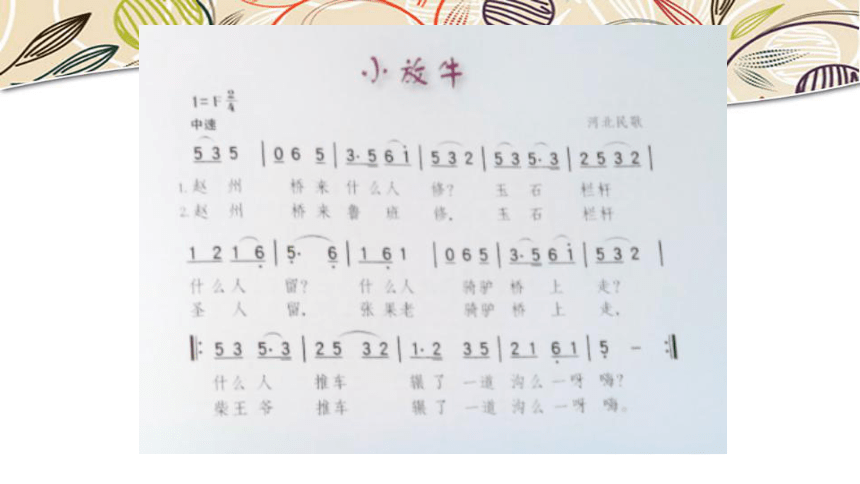 小放牛
1=F 2/4
中速 河北民歌
5 3 5 | 0 6 5 | 3· 5 6 i | 5 3 2 | 5 3 5· 3 | 2 5 3 2 |
1.赵 州 桥 来 什 么 人 修? 玉 石 栏杆
2.赵 州 桥 来 鲁 班 修, 玉 石 栏杆
1 2 1 6̣ | 5̣· 6̣ | 1 6̣ 1 | 0 6 5 | 3· 5 6 i | 5 3 2 |
什 么 人 留? 什 么 人 骑驴 桥 上 走?
圣 人 留, 张 果 老 骑驴 桥 上 走,
‖: 5 3 5· 3 | 2 5 3 2 | 1· 2 3 5 | 2 1 6̣ 1 | 5̣ - :‖
什 么 人 推车 辗 了 一道 沟 么 一 呀 嗨?
柴 王 爷 推车 辗 了 一道 沟 么 一 呀 嗨。